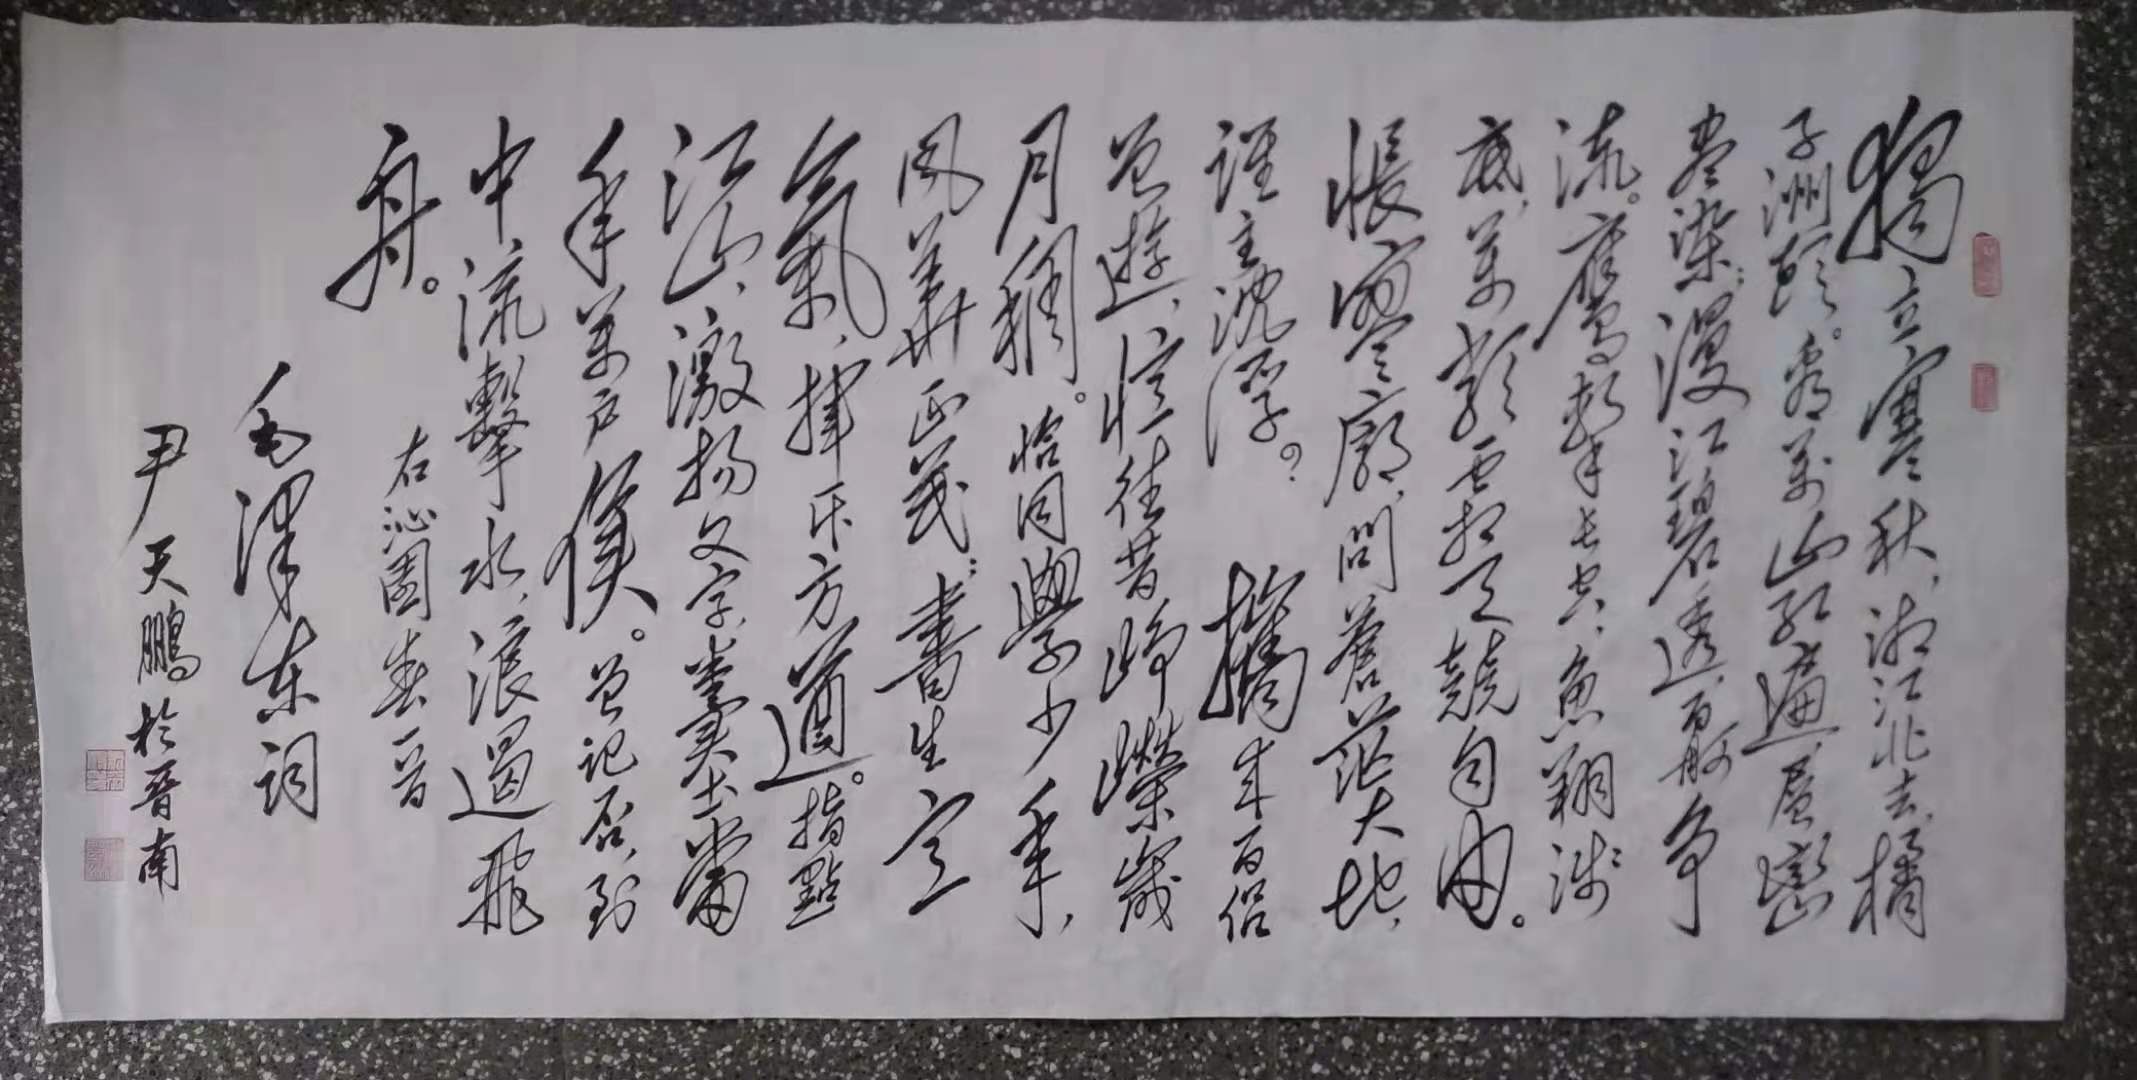 獨立寒秋,湘江北去,橘
子洲頭。看萬山红遍,層巒
盡染;漫江碧透,百舸争
流。鷹擊長空,魚翔淺
底,萬類霜天競自由。
悵寥廓,問蒼茫大地,
誰主沈浮? 攜來百侣
曾遊,憶往昔崢嶸歲
月稠。恰同學少年,
风華正茂;書生意
氣,揮斥方遒。指點
江山,激揚文字,糞土當
年萬户侯。曾記否,到
中流擊水,浪遏飛
舟。
右沁園春一首
毛澤东詞
尹天鵬於晉南